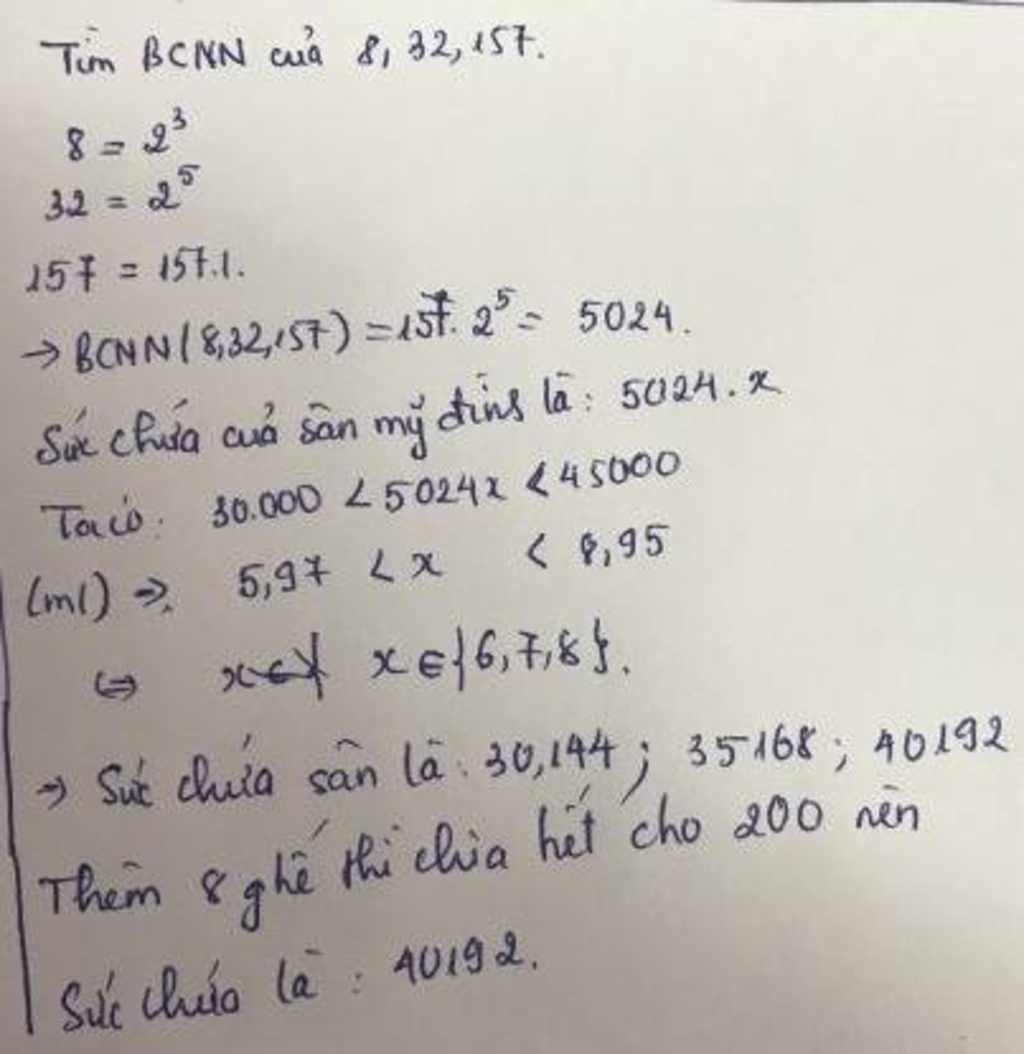 Tìm BCNN của 8, 32, 157.
8 = 2³
32 = 2⁵
157 = 157.1.
→ BCNN(8,32,157) = 157. 2⁵ = 5024.
Sức chứa của sân mỹ đình là: 5024. x
Ta có: 30.000 < 5024x < 45000
(ml) → 5,97 < x < 8,95
⇔ x ∈ { x ∈ {6,7,8}.
→ Sức chứa sân là: 30,144; 35168; 40192
Thêm 8 ghế thì chia hết cho 200 nên
Sức chứa là: 40192.